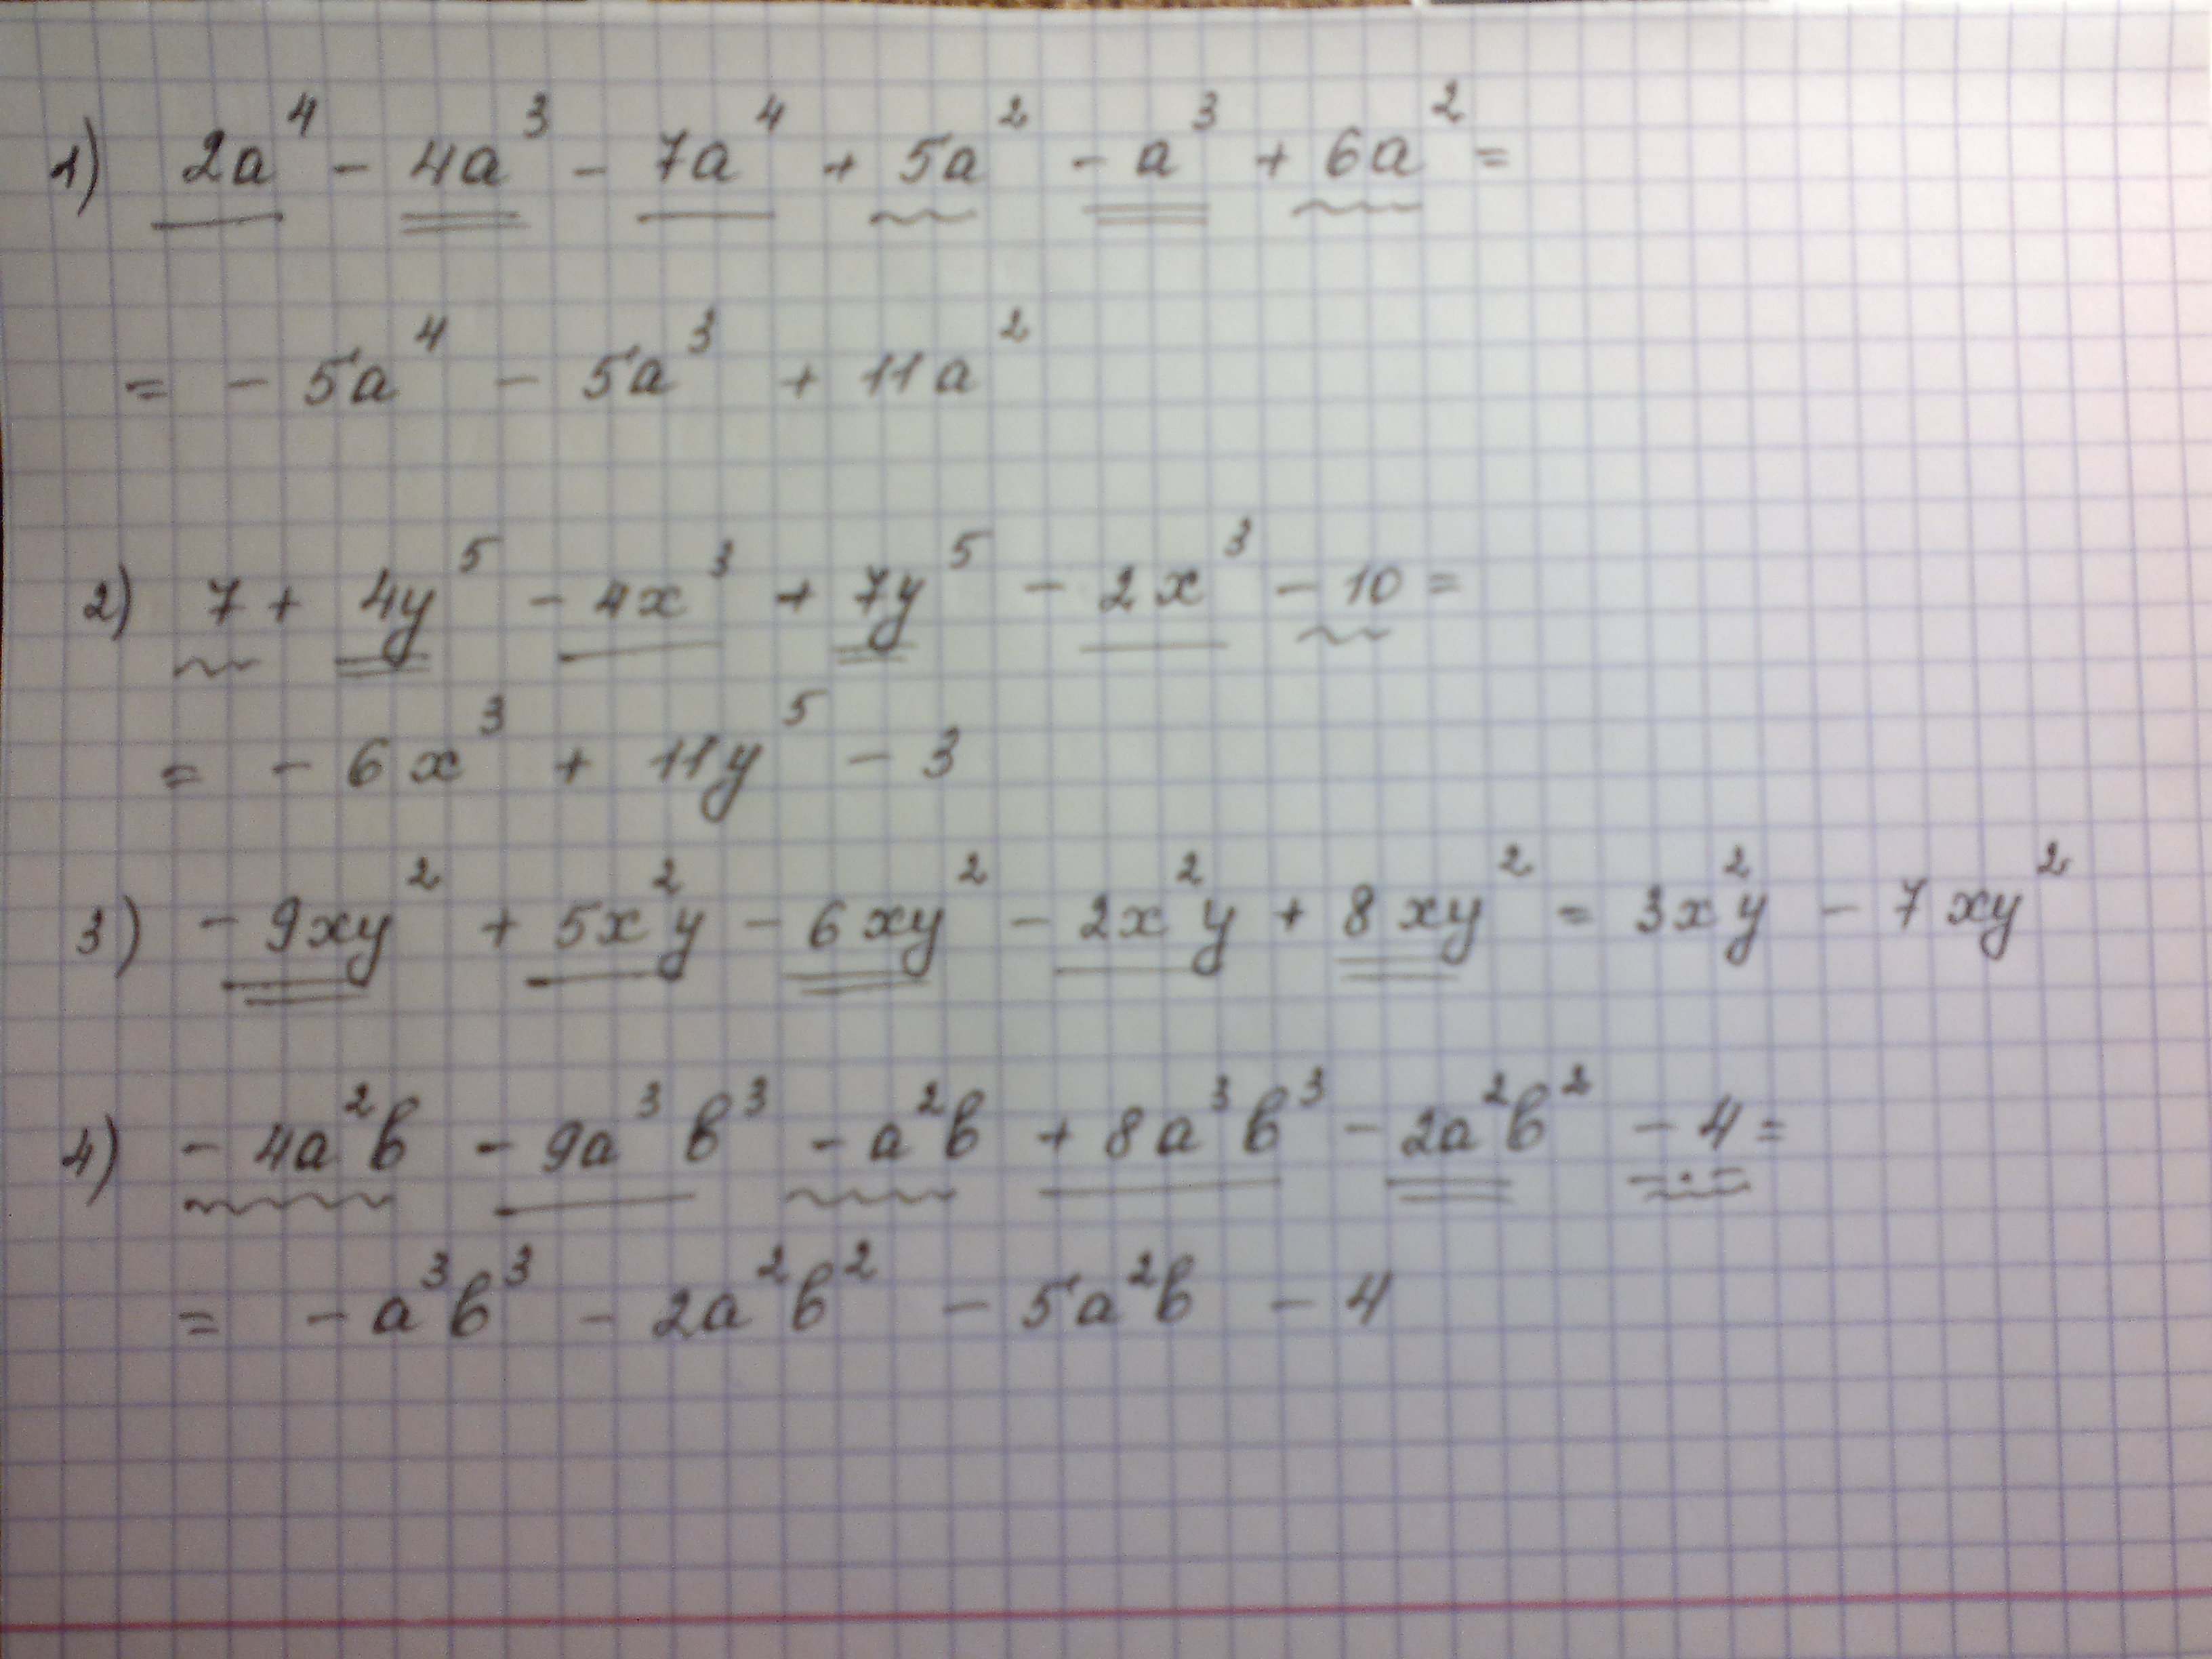 1) 2a⁴ - 4a³ - 7a⁴ + 5a² - a³ + 6a² =
= - 5a⁴ - 5a³ + 11a²
2) 7 + 4y⁵ - 4x³ + 7y⁵ - 2x³ - 10 =
= - 6x³ + 11y⁵ - 3
3) - 9xy² + 5x²y - 6xy² - 2x²y + 8xy² = 3x²y - 7xy²
4) - 4a²b - 9a³b³ - a²b + 8a³b³ - 2a²b² - 4 =
= - a³b³ - 2a²b² - 5a²b - 4